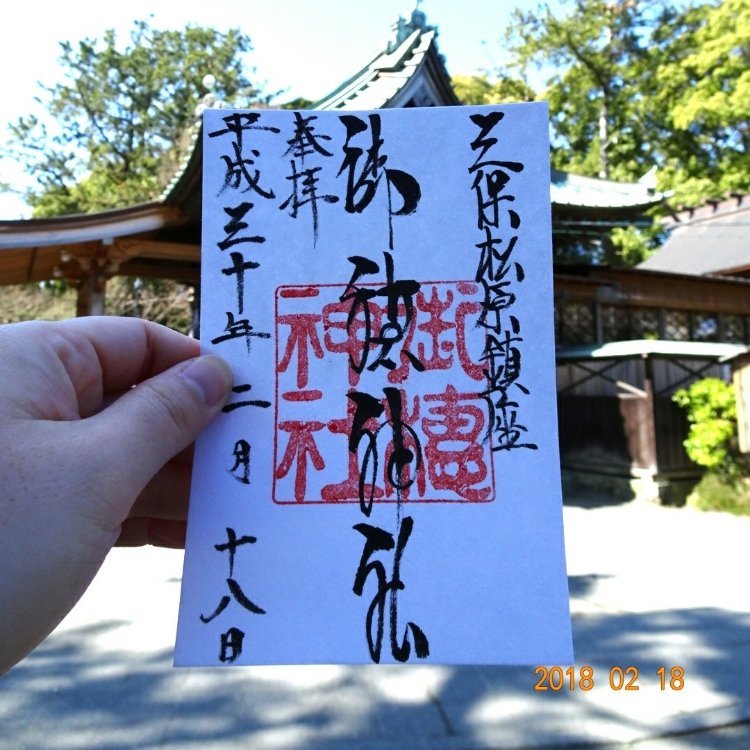 三保松原鎮座
御穂神社
奉拝
平成三十年二月十八日
御穂神社
2018 02 18